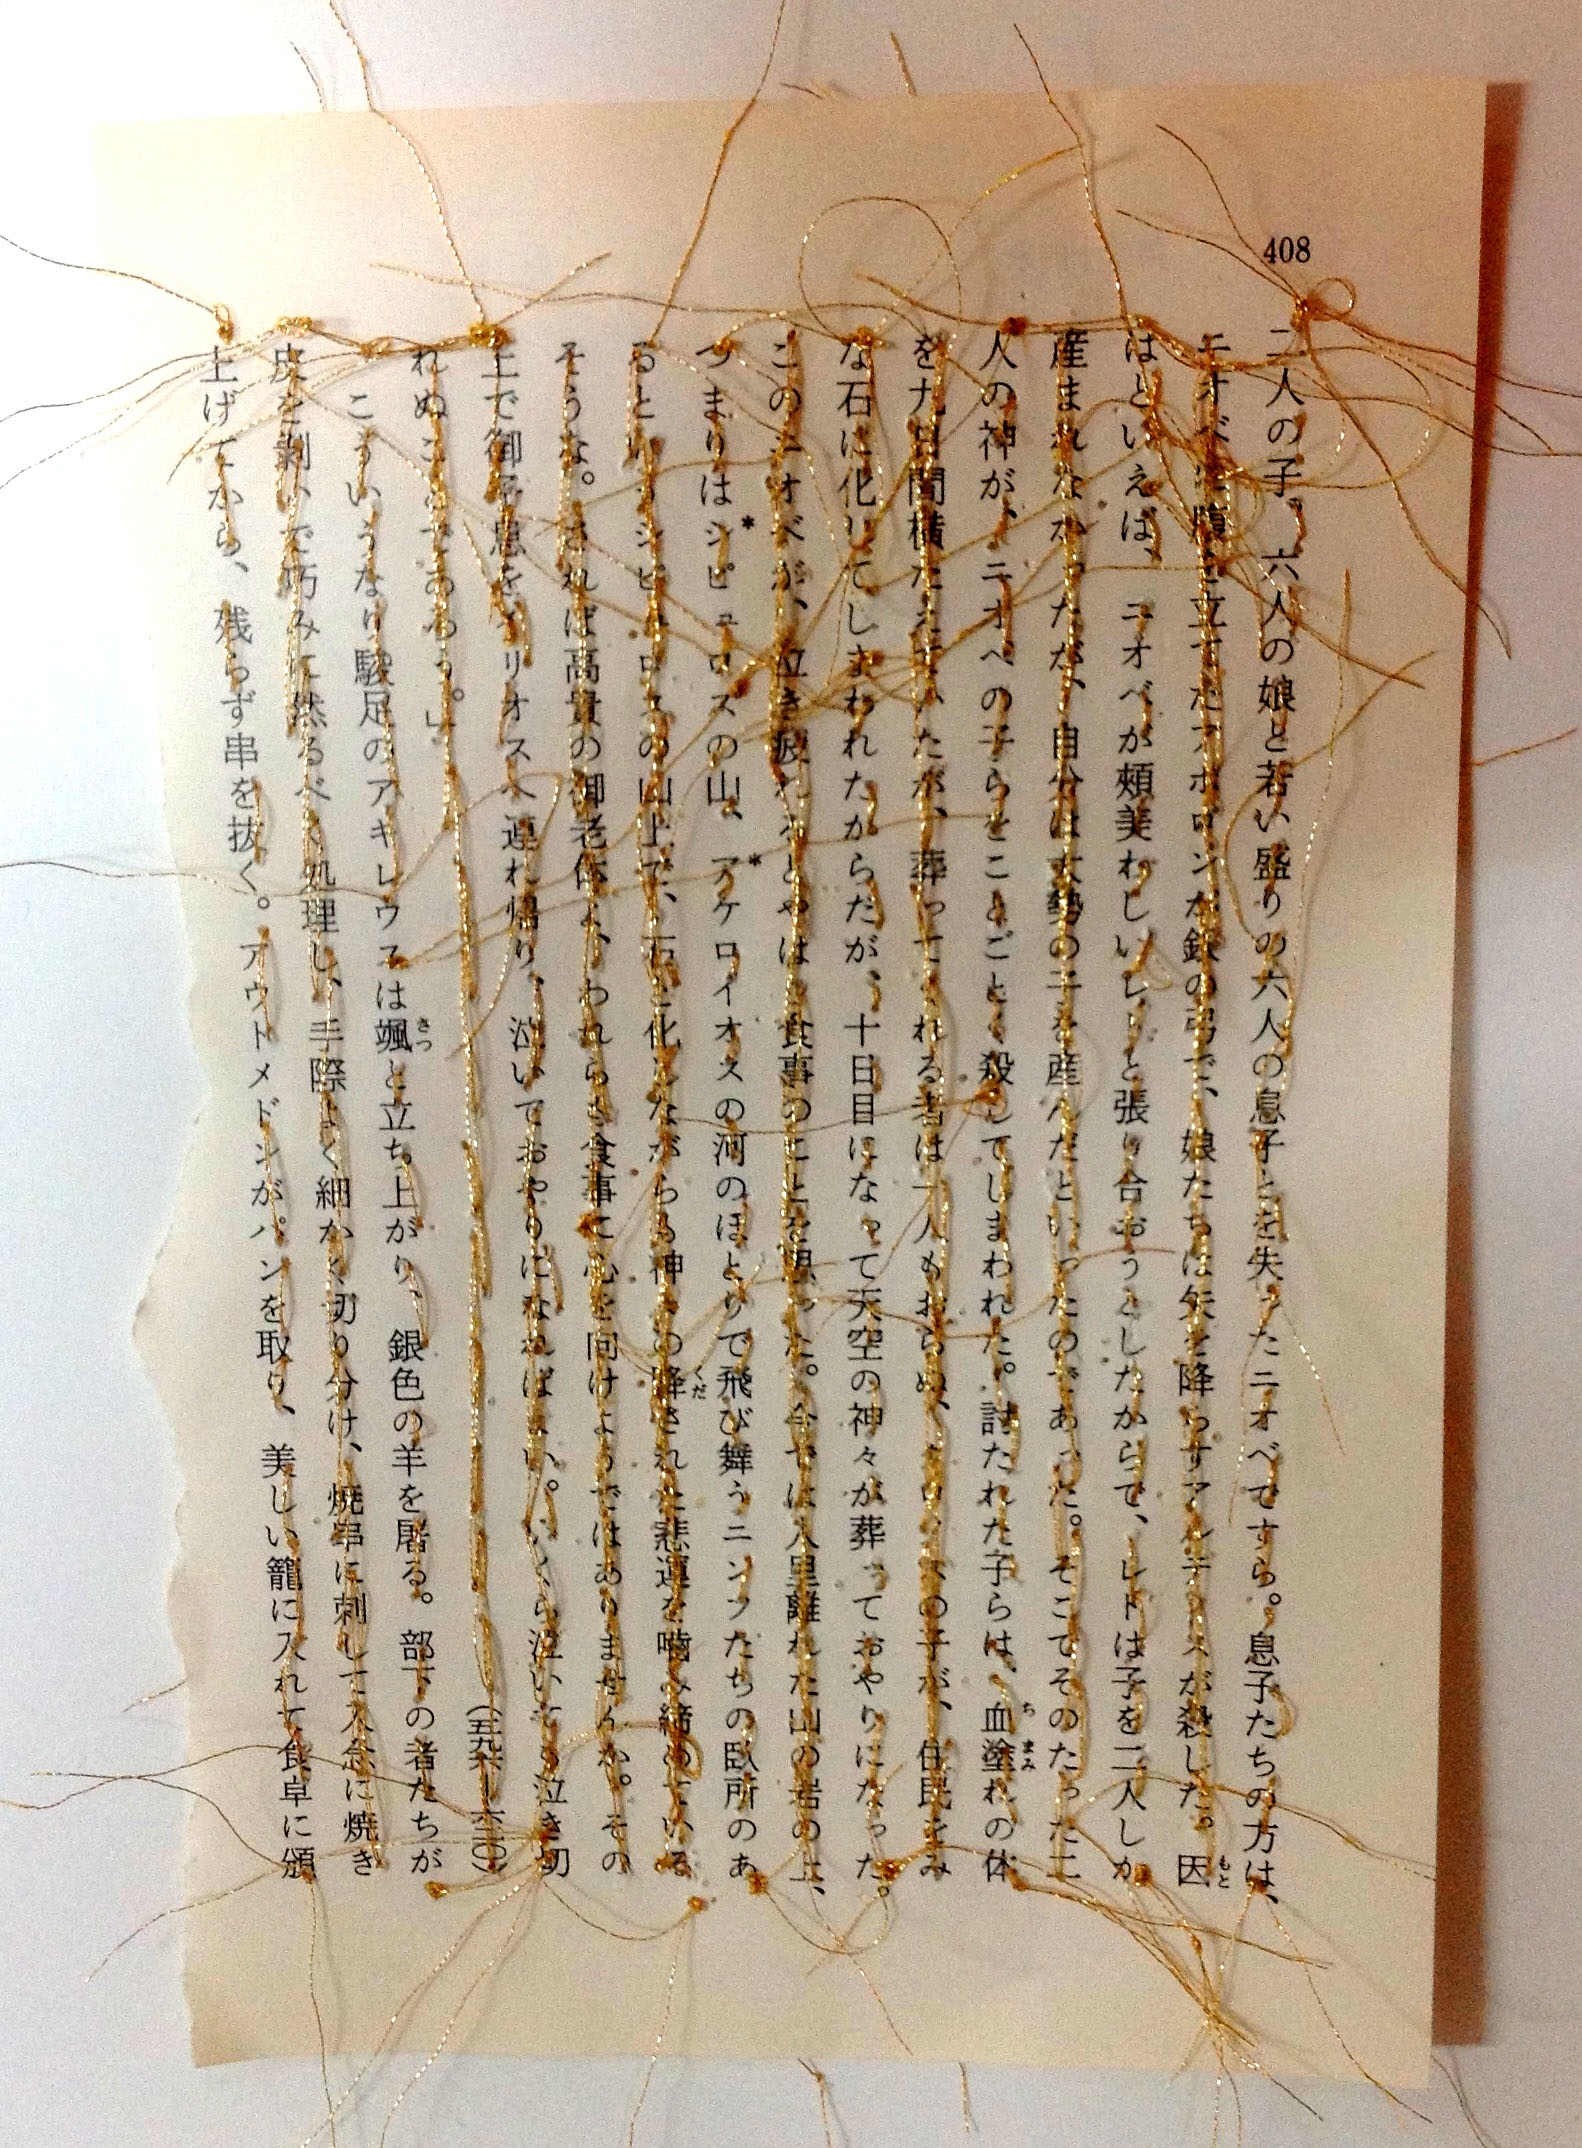 408
二人の子、六人の娘と若い盛りの六人の息子とを失ったニオベですら。息子たちの方は、
ニオベに腹を立てたアポロンが銀の弓で、娘たちは矢を降らすアルテミスが殺した。因もと
はといえば、ニオベが頰美わしいレトと張り合おうとしたからで、レトは子を二人しか
産まれなかったが、自分は大勢の子を産んだといったのであった。そこでそのたった二
人の神が、ニオベの子らをことごとく殺してしまわれた。討たれた子らは、血塗ちまみれの体
を九日間横たえていたが、葬ってくれる者は一人もおらぬ、クロノスの子が、住民をみ
な石に化してしまわれたからだが、十日目になって天空の神々が葬っておやりになった。
このニオベが、泣き疲れるとやはり食事のことを思った。今では人里離れた山の岩の上、
つまりはシピュロスの山、アケロイオスの河のほとりで飛び舞うニンフたちの臥所のあ
るというシピュロスの山上で、石と化しながらも神々の降くだされた悲運を嚙み締めている
そうな。されば高貴の御老体よ、われらも食事に心を向けようではありませんか。その
上で御子息をイリオスへ連れ帰り、泣いておやりになればよい。いくら泣いても泣き切
れぬことであろう。」　（五九六―六二〇）
こういうなり駿足のアキレウスは颯さつと立ち上がり、銀色の羊を屠る。部下の者たちが
皮を剝いで巧みに然るべく処理し、手際よく細かく切り分け、焼串に刺して入念に焼き
上げてから、残らず串を抜く。アウトメドンがパンを取り、美しい籠に入れて食卓に頒